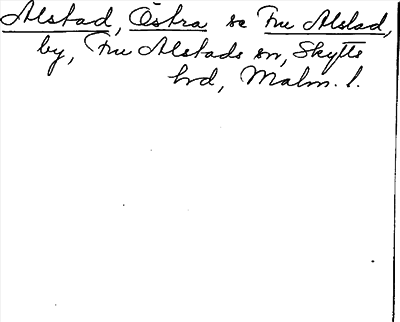 Alstad, Östra se Fru Alstad,
by, Fru Alstads sn, Skytts
hd, Malm. l.